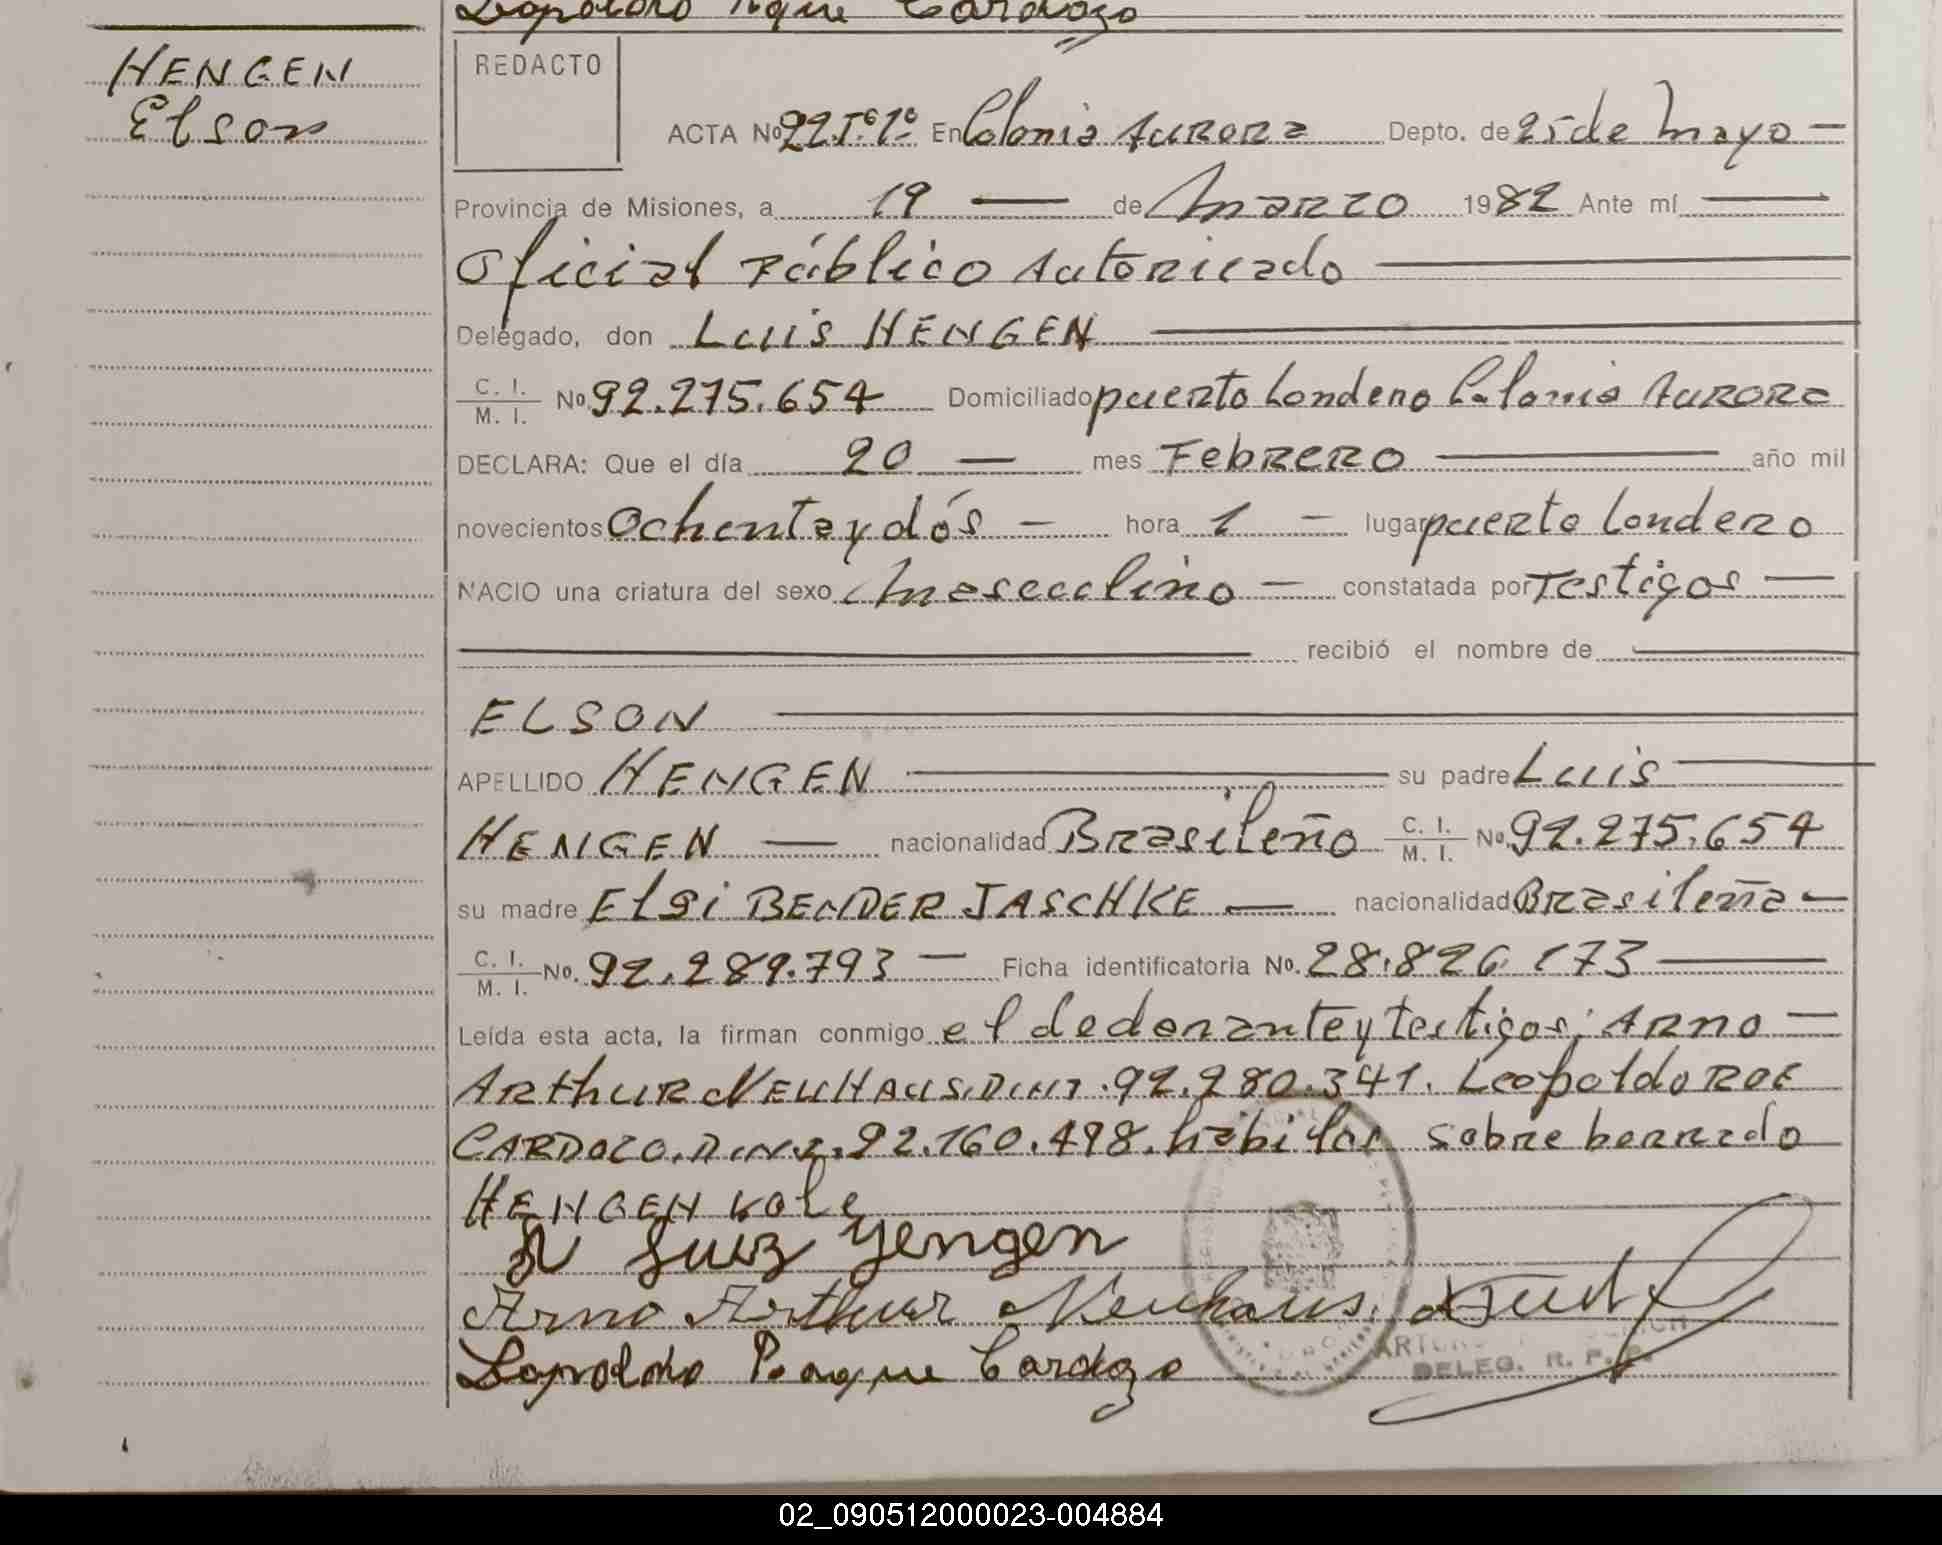 Leopoldo Roque Cardozo
HENGEN
Elson
REDACTO
ACTA No 22 Tº1º En Colonia Aurora Depto. de 25 de Mayo —
Provincia de Misiones, a 19 — de Marzo 1982 Ante mí —
Oficial Público Autoricado —
Delegado, don Luis HENGEN —
C. I. / M. I. No 92.275.654 Domiciliado puerto Londero Colonia Aurora
DECLARA: Que el día 20 — mes Febrero — año mil
novecientos Ochenta y dós — hora 1 — lugar puerto Londero
NACIO una criatura del sexo Masculino — constatada por Testigos —
recibió el nombre de
ELSON —
APELLIDO HENGEN — su padre Luis —
HENGEN — nacionalidad Brasileño C. I. / M. I. No. 92.275.654
su madre Elsi BENDER JASCHKE — nacionalidad Brasileña —
C. I. / M. I. No. 92.289.793 — Ficha identificatoria No. 28.826.173 —
Leída esta acta, la firman conmigo el y testigos: Arno —
Arthur NEUHAUS. 92.280.341. Leopoldo ROE
CARDOZO. 92.160.498. habiles sobre borrado
HENGEN vale
Luiz Yengen
Arno Arthur Neuhaus.
Leopoldo Roque Cardozo
DELEG. R. P.
02_090512000023-004884